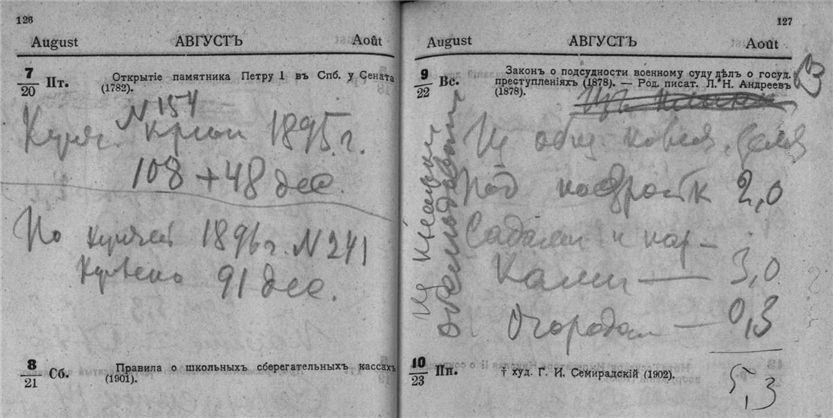 126
August АВГУСТЪ Août
7/20 Пт. Открытіе памятника Петру I въ Спб. у Сената
(1782).
N 154
Купч. креп 1895 г.
108 + 48 дес.
По купчей 1896 г. N 241
Куплено 91 дес.
8/21 Сб. Правила о школьныхъ сберегательныхъ кассахъ
(1901).
127
August АВГУСТЪ Août
9/22 Вс. Законъ о подсудности военному суду дѣлъ о госуд.
преступленіяхъ (1878). — Род. писат. Л. Н. Андреевъ
(1878).
Из общ
Под постройк 2,0
Садами и пар-
ками — 3,0
Огородам — 0,3
10/23 Пн. † худ. Г. И. Семирадскій (1902).
5,3